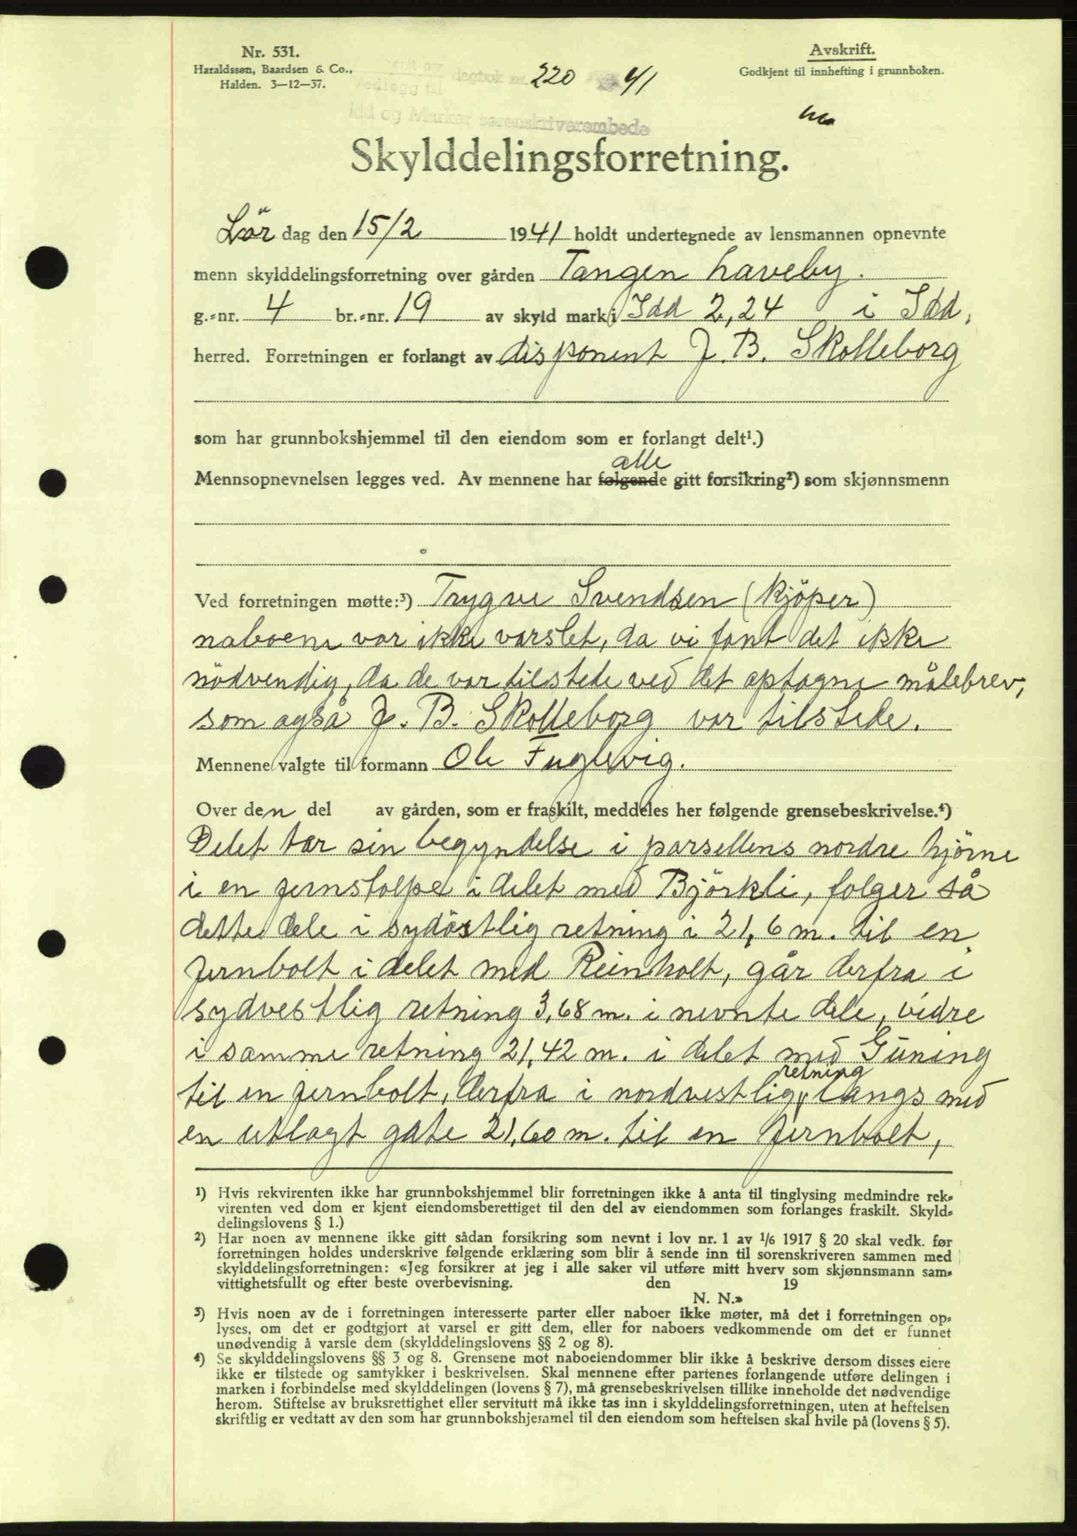 Nr. 531.
Haraldssøn, Baardsen & Co.,
Halden. 3—12—37.
Avskrift.
Godkjent til innhefting i grunnboken.
dagbok nr. 220 41
Vedlegg til
Idd og Marker sorenskriverembede
Skylddelingsforretning.
Lör dag den 15/2 1941 holdt undertegnede av lensmannen opnevnte
menn skylddelingsforretning over gården Tangen Laveby.
g.-nr. 4 br.-nr. 19 av skyld mark i Idd 2,24 i Idd,
herred. Forretningen er forlangt av disponent J. B. Skolleborg
som har grunnbokshjemmel til den eiendom som er forlangt delt¹.)
alle
Mennsopnevnelsen legges ved. Av mennene har følgende gitt forsikring²) som skjønnsmenn
Ved forretningen møtte:³) Trygve Svendsen (kjöper)
naboene var ikke varslet, da vi fant det ikke
nödvendig, da de var tilstede ved det optagne målebrev,
som også J. B. Skolleborg var tilstede.
Mennene valgte til formann Ole Fuglevig.
Over den del av gården, som er fraskilt, meddeles her følgende grensebeskrivelse.⁴)
Delet tar sin begyndelse i parsellens nordre hjörne
i en jernstolpe i delet med Björkli, folger så
dette dele i sydöstlig retning i 21,6 m. til en
jernbolt i delet med Reinholt, går derfra i
sydvestlig retning 3,68 m. i nevnte dele, vidre
i samme retning 21,42 m. i delet med Guning
retning
til en jernbolt, derfra i nordvestlig, langs med
en utlagt gate 21,60 m. til en jernbolt,
¹) Hvis rekvirenten ikke har grunnbokshjemmel blir forretningen ikke å anta til tinglysing medmindre rek-
virenten ved dom er kjent eiendomsberettiget til den del av eiendommen som forlanges fraskilt. Skyld-
delingslovens § 1.)
²) Har noen av mennene ikke gitt sådan forsikring som nevnt i lov nr. 1 av 1/6 1917 § 20 skal vedk. før
forretningen holdes underskrive følgende erklæring som blir å sende inn til sorenskriveren sammen med
skylddelingsforretningen: «Jeg forsikrer at jeg i alle saker vil utføre mitt hverv som skjønnsmann sam-
vittighetsfullt og efter beste overbevisning. den 19
N. N.»
³) Hvis noen av de i forretningen interesserte parter eller naboer ikke møter, må det i forretningen op-
lyses, om det er godtgjort at varsel er gitt dem, eller for naboers vedkommende om det er funnet
unødvendig å varsle dem (skylddelingslovens §§ 2 og 8).
⁴) Se skylddelingslovens §§ 3 og 8. Grensene mot naboeiendommer blir ikke å beskrive dersom disses eiere
ikke er tilstede og samtykker i beskrivelsen. Skal mennene efter partenes forlangende utføre delingen i
marken i forbindelse med skylddelingen (lovens § 7), må grensebeskrivelsen tillike inneholde det nødvendige
herom. Stiftelse av bruksrettighet eller servitutt må ikke tas inn i skylddelingsforretningen, uten at heftelsen
skriftlig er vedtatt av den som har grunnbokshjemmel til den eiendom som heftelsen skal hvile på (lovens § 5).